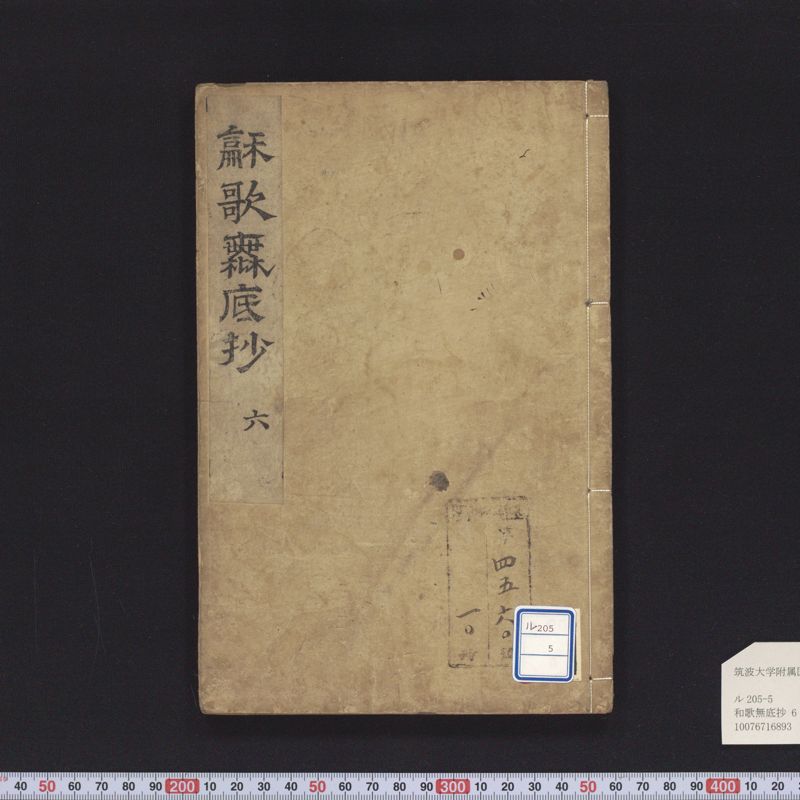 龢歌無底抄
六
四五六〇
一〇
ル205
5
筑波大学附属
ル 205-5
和歌無底抄 6
10076716893
40 50 60 70 80 90 200 10 20 30 40 50 60 70 80 90 300 10 20 30 40 50 60 70 80 90 400 10 20